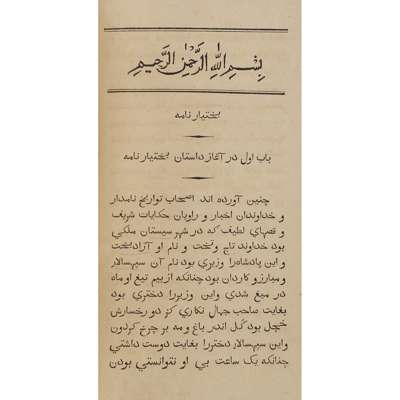 بِسْمِ اللهِ الرَّحْمٰنِ الرَّحِيمِ
بختيار نامه
باب اول در آغاز داستان بختيار نامه
چنين آورده اند اصحاب تواريخ نامدار
و خداوندان اخبار و راويان حكايات شريف
و قصهاي لطيف كه در شهر سيستان ملكي
بود خداوند تاج و تخت و نام او آزادبخت
و اين پادشاه را وزيري بود نام آن سپهسالار
و مبارز و كاردان بود چنانكه از بيم تيغ او ماه
در ميغ شدي و اين وزير را دختري بود
بغايت صاحب جمال نگاري كز دو رخسارش
خجل بود گل اندر باغ و مه بر چرخ گردون
و اين سپهسالار دختر را بغايت دوست داشتي
چنانكه يك ساعت بي او نتوانستي بودن